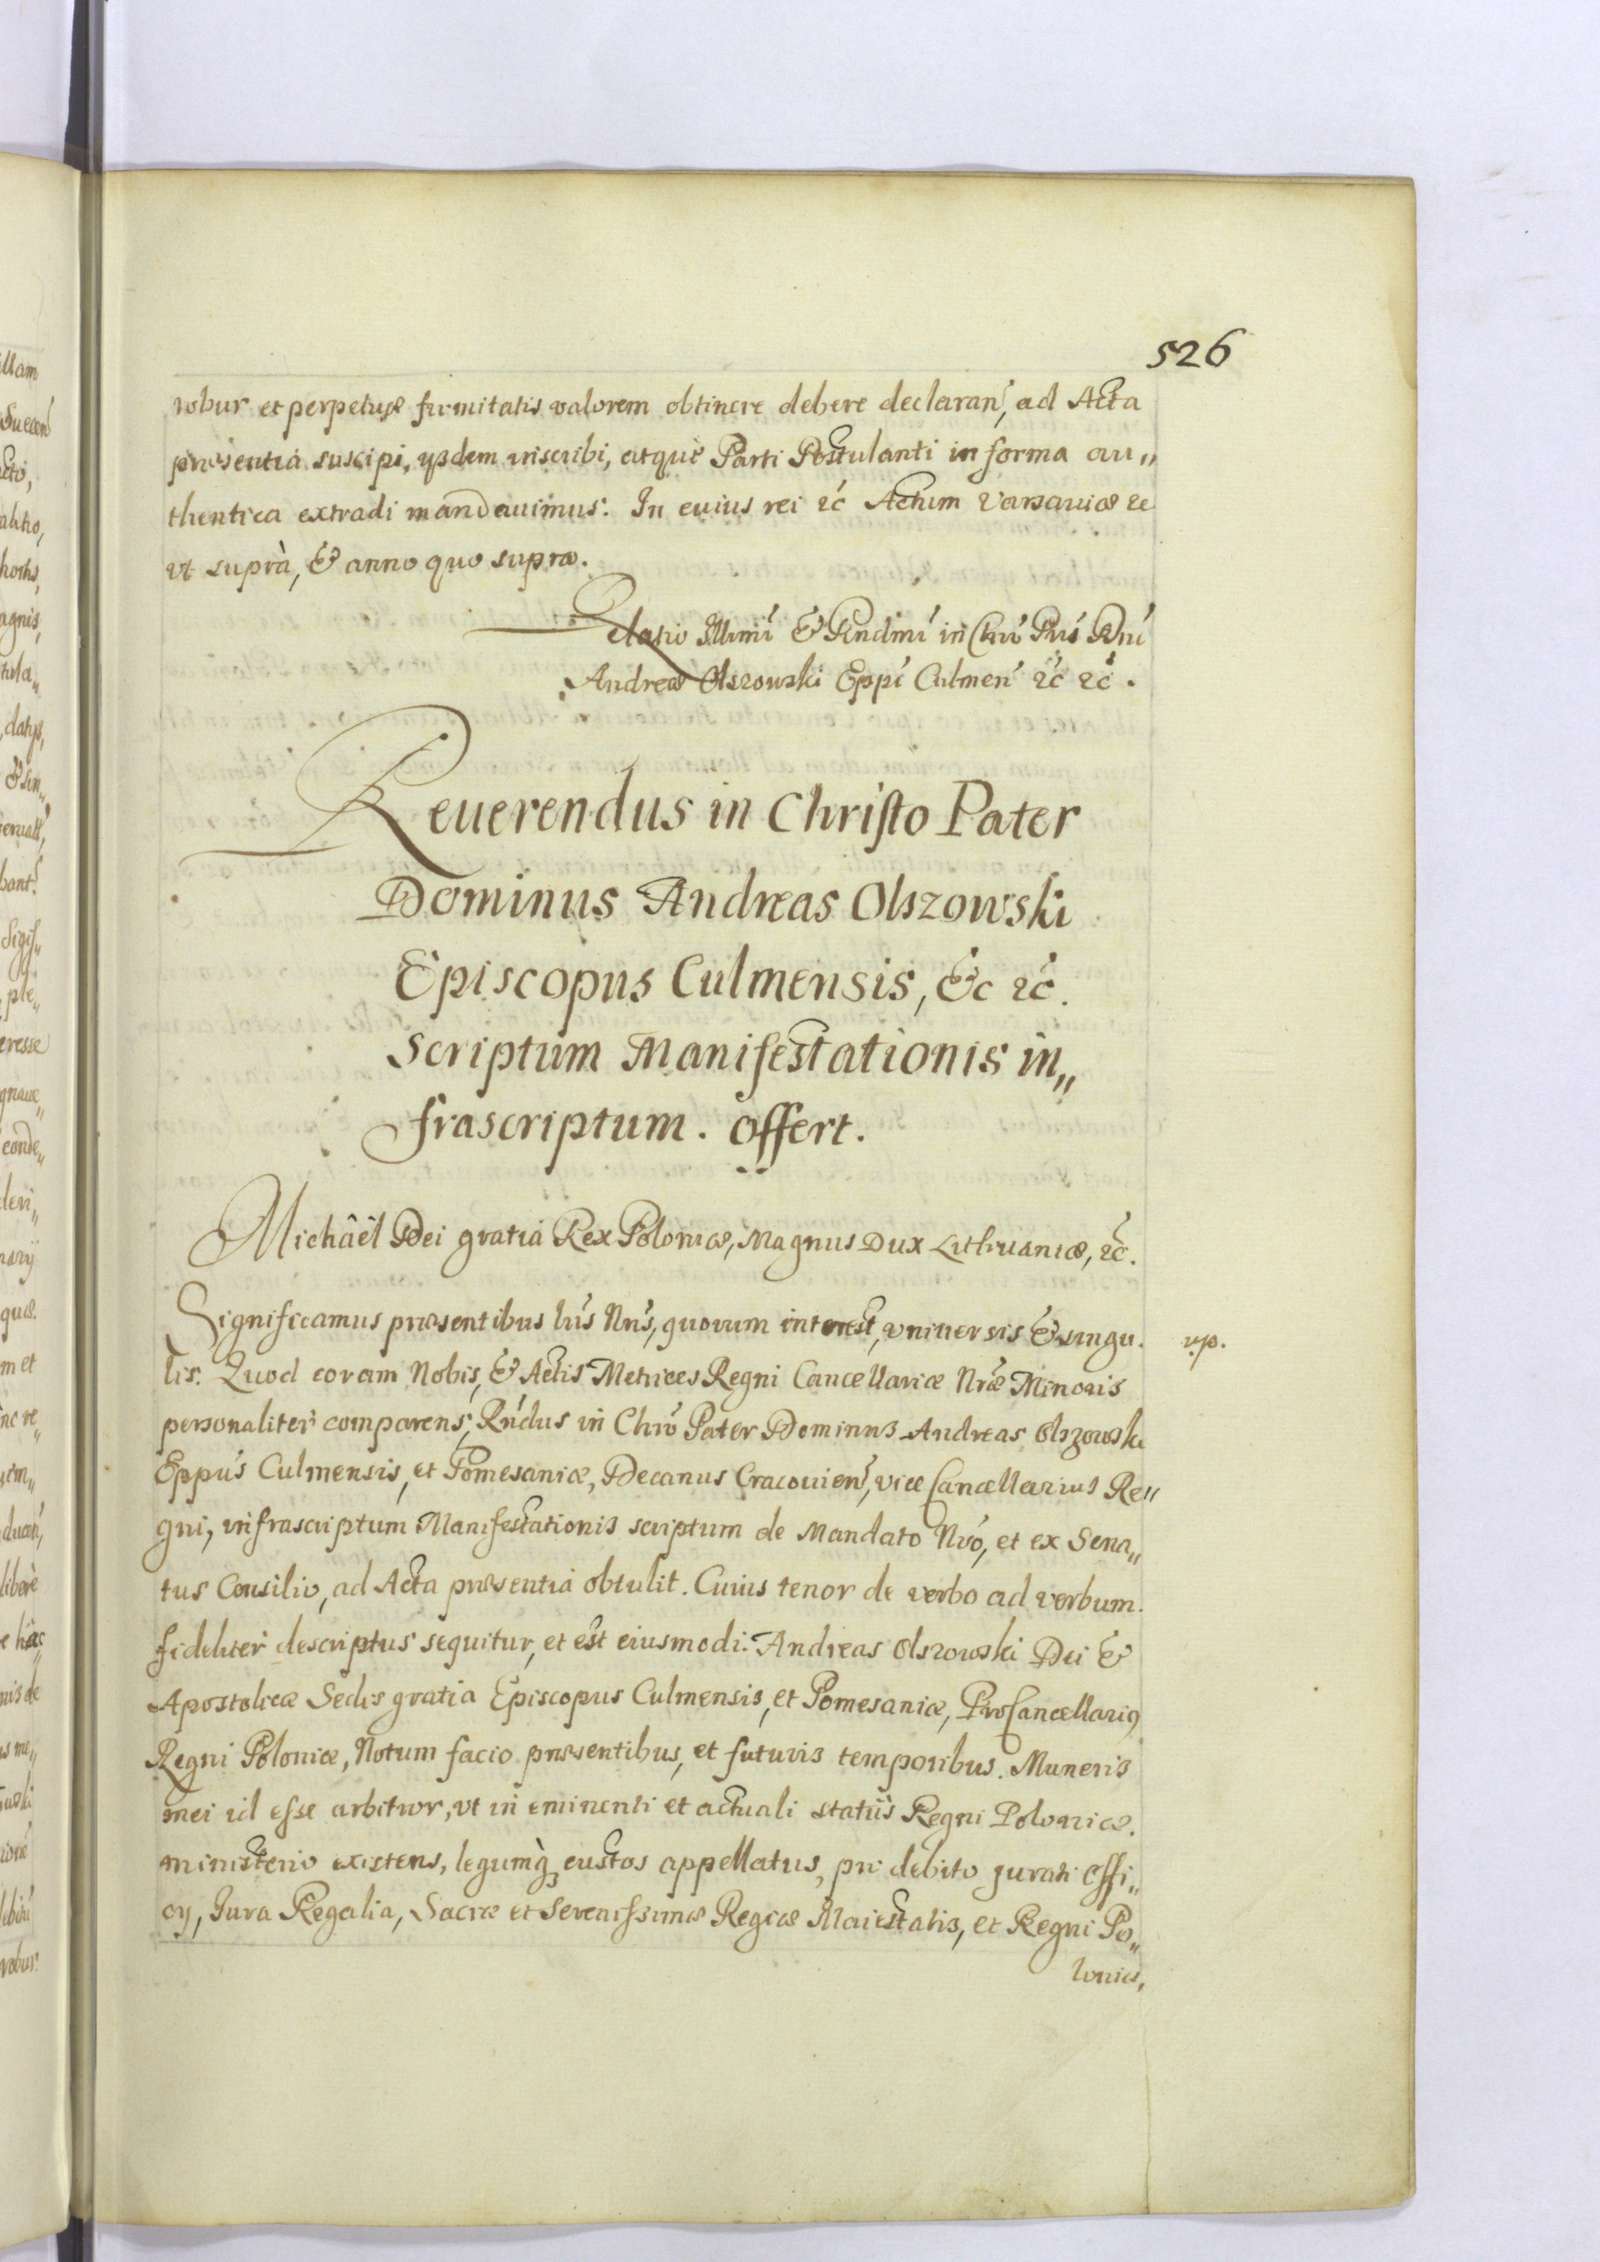 526
robur et perpetuæ firmitatis valorem obtinere debere declaran, ad Acta
præsentia suscipi, ijsdem inscribi, atque Parti Postulanti in forma au„
thentica extradi mandauimus. In cuius rei &c Actum Varsauiæ &c
vt suprà, & anno quo supra.
Relatio Illmi & Rndmi in Chro Pris Dni
Andreæ Olszowski Eppi Culmen &c &c.
Reuerendus in Christo Pater
Dominus Andreas Olszowski
Episcopus Culmensis, &c &c.
Scriptum Manifestationis in„
frascriptum. offert.
Michâêl Dei gratia Rex Poloniæ, Magnus Dux Lithuaniæ, &c.
Significamus præsentibus lris Nris, quorum interest, vniuersis & singu.
v.p.
lis. Quod coram Nobis, & Actis Metrices Regni Cancellariæ Nræ Minoris
personaliter comparens, Rndus in Chro Pater Dominus Andreas Olszowski
Eppus Culmensis, et Pomesaniæ, Decanus Cracouien, vice Cancellarius Re„
gni, infrascriptum Manifestationis scriptum de Mandato Nro, et ex Sena„
tus Consilio, ad Acta præsentia obtulit. Cuius tenor de verbo ad verbum.
fideliter descriptus sequitur, et est eiusmodi. Andreas Olszowski Dei &
Apostolicæ Sedis gratia Episcopus Culmensis, et Pomesaniæ, ProCancellarius
Regni Poloniæ, Notum facio præsentibus, et futuris temporibus. Muneris
mei id esse arbitror, vt in eminenti et actuali statûs Regni Poloniæ.
ministerio existens, legumq́ꝫ custos appellatus, pri debito jurati offi„
cij, Jura Regalia, Sacræ et Serenissimæ Regiæ Maiestatis, et Regni Po„
loniæ,